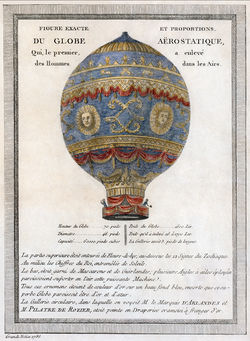 FIGURE EXACTE ET PROPORTIONS.
DU GLOBE AËROSTATIQUE,
Qui, le premier, a enlevé
des Hommes dans les Airs.
Hauteur du Globe 70 pieds
Diametre 46 pieds
Capacité 60000 pieds cubes
Poids du Globe
La partie supérieure étoit entourée de Fleurs-de-lys, au-dessous les 12 Signes du Zodiaque
Au milieu les Chiffres du Roi, entremêlés de Soleils
Le bas, étoit garni de Mascarons et de Guirlandes, plusieurs Aigles à ailes éployées
paroissoient supporter en l'air cette puissante Machine
Tous ces ornemens étoient de couleur d'or sur un beau fond bleu, ensorte que ce su-
perbe Globe paroissoit être d'or et d'azur
La Gallerie circulaire, dans laquelle on voyoit M. le Marquis D'ARLANDES et
M. PILATRE DE ROZIER, étoit peinte en Draperies cramoisi à franges d'or